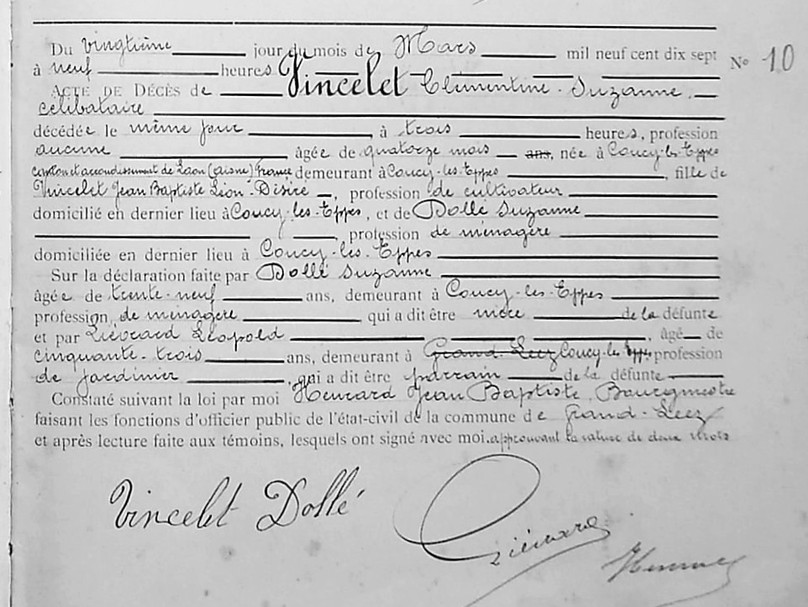 Du vingtième jour du mois de Mars mil neuf cent dix sept No 10
à neuf heures
Acte de Décès de Vincelet Clémentine Suzanne,
célibataire
décédée le même jour, à trois heures, profession
aucune âgée de quatorze mois ans, née à Coucy-les-Eppes
canton et arrondissement de Laon (Aisne) France demeurant à Coucy-les-Eppes, fille de
Vincelet Jean Baptiste Léon Désiré, profession de cultivateur
domicilié en dernier lieu à Coucy-les-Eppes, et de Dollé Suzanne
, profession de ménagère
domiciliée en dernier lieu à Coucy-les-Eppes
Sur la déclaration faite par Dollé Suzanne
âgée de trente-neuf ans, demeurant à Coucy-les-Eppes
profession de ménagère qui a dit être mère de la défunte
et par Léopold, âgé de
cinquante-trois ans, demeurant à Grand-Leez Coucy-les-Eppes, profession
de jardinier, qui a dit être parrain de la défunte
Constaté suivant la loi par moi Henrard Jean Baptiste, Bourgmestre
faisant les fonctions d'officier public de l'état-civil de la commune de Grand-Leez
et après lecture faite aux témoins, lesquels ont signé avec moi. approuvant la rature de deux mots
Vincelet Dollé